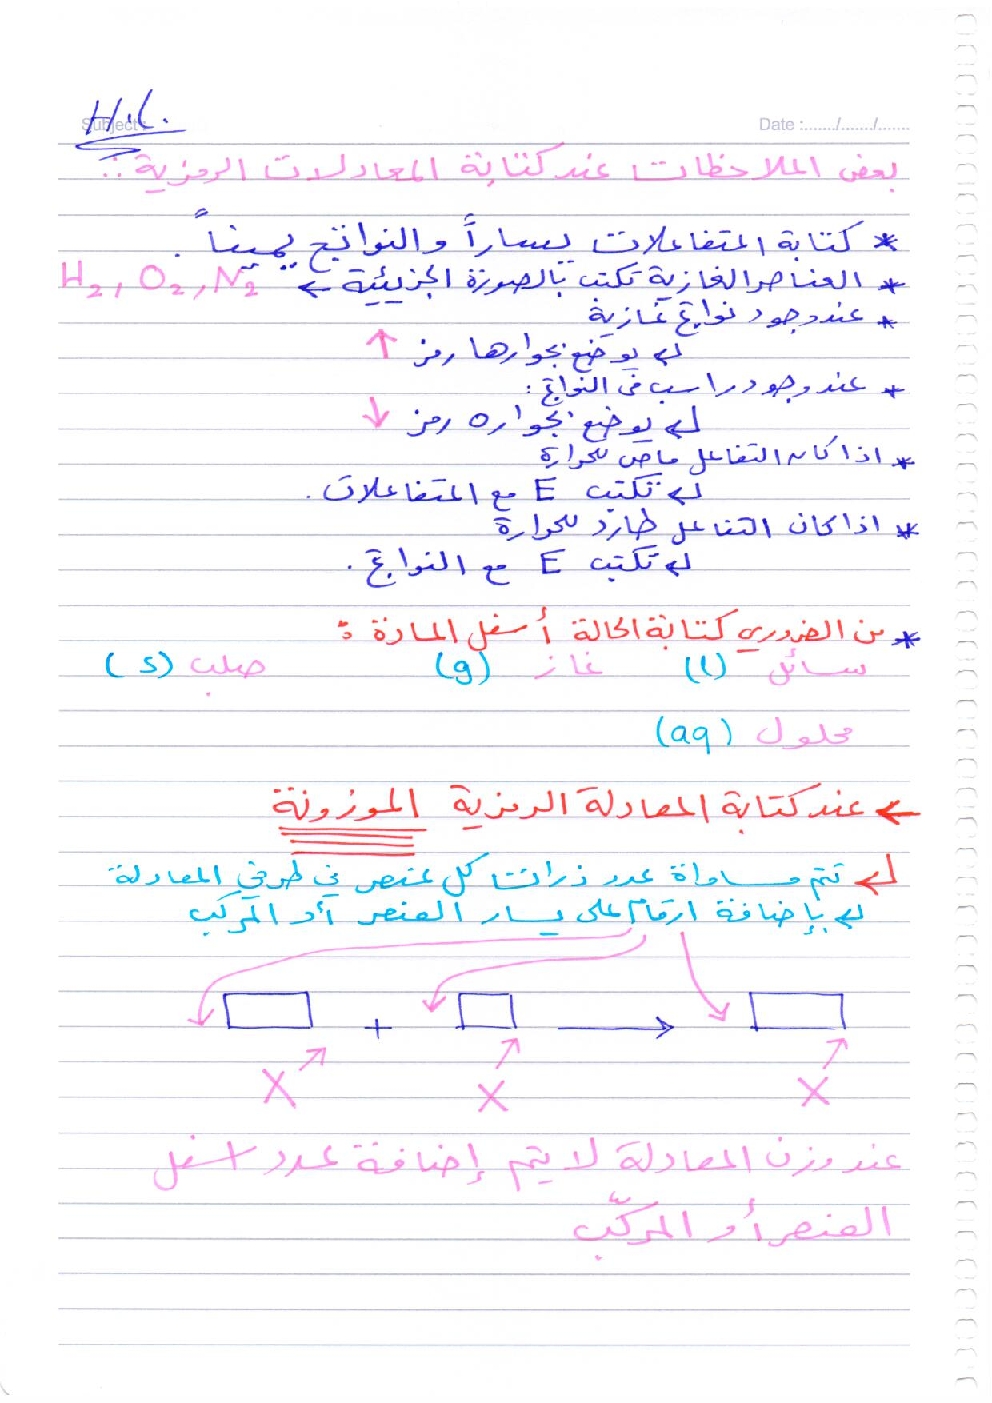 H.L.
Subject:
Date :......./......./.......
بعض الملاحظات عند كتابة المعادلات الرمزية:
* كتابة المتفاعلات يساراً والنواتج يميناً.
* العناصر الغازية تكتب بالصورة الجزيئية ← H2, O2, N2
* عند وجود نواتج غازية
يوضع بجوارها رمز ↑
* عند وجود راسب في النواتج:
يوضع بجواره رمز ↓
* اذا كان التفاعل ماص للحرارة
تكتب E مع المتفاعلات.
* اذا كان التفاعل طارد للحرارة
تكتب E مع النواتج.
* من الضروري كتابة الحالة أسفل المادة:
سائل (l) غاز (g) صلب (s)
محلول (aq)
← عند كتابة المعادلة الرمزية الموزونة
تتم مساواة عدد ذرات كل عنصر في طرفي المعادلة
بإضافة ارقام على يسار العنصر أو المركب
+ →
X X X
عند وزن المعادلة لا يتم إضافة عدد اسفل
العنصر أو المركّب